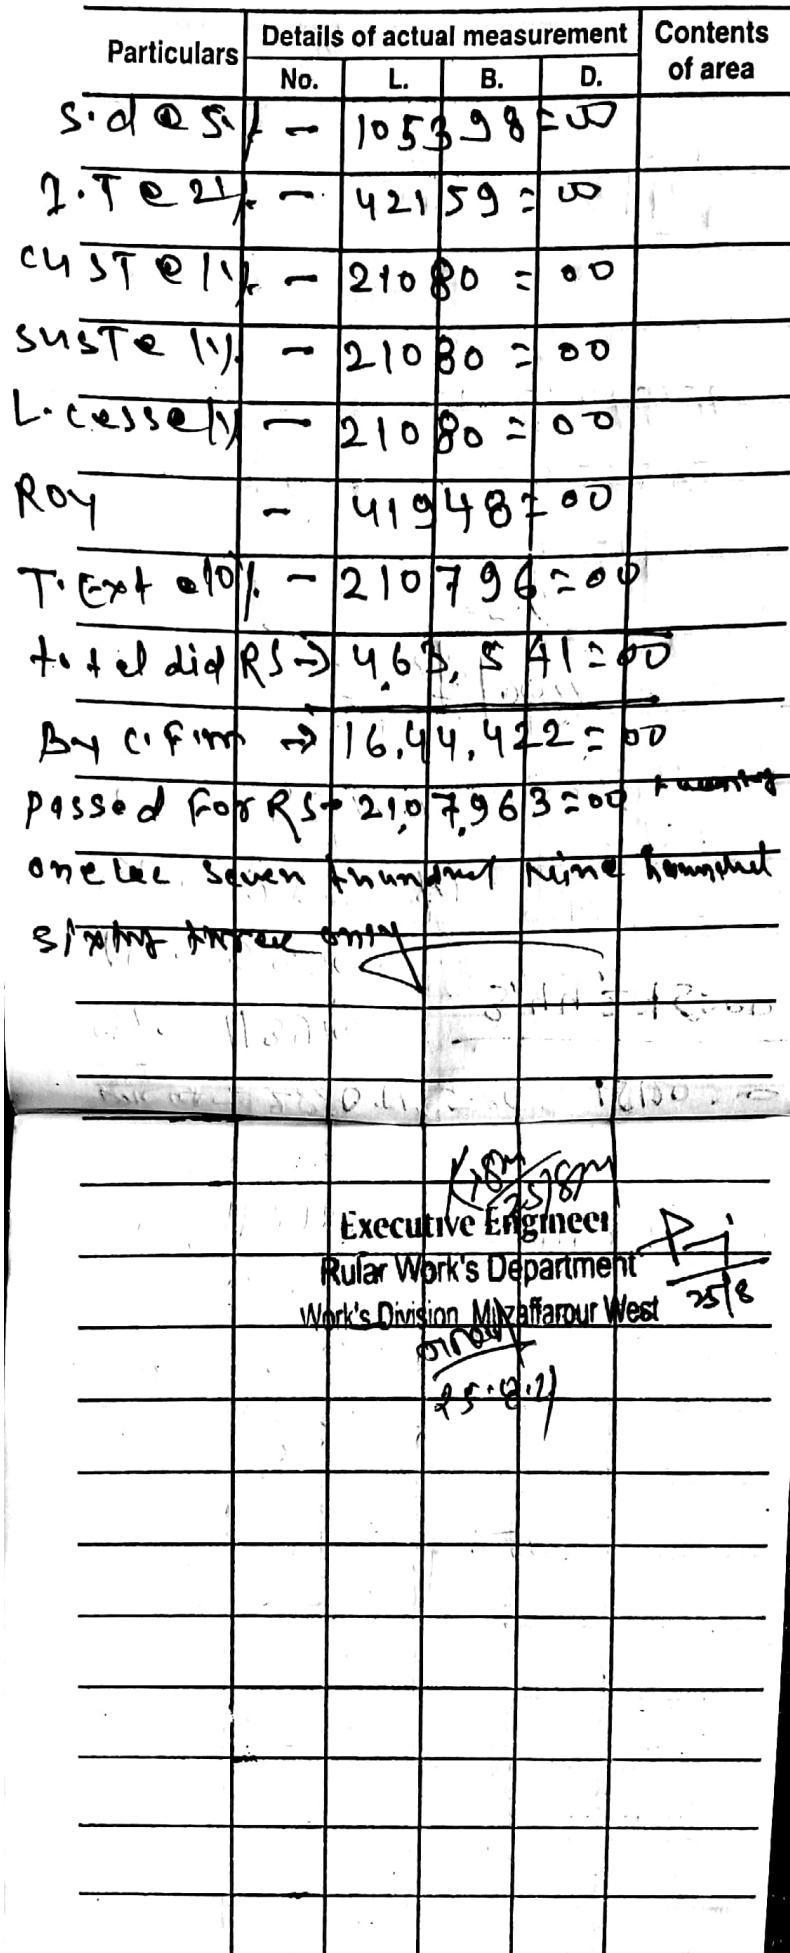 Particulars Details of actual measurement Contents of area
No. L. B. D.
S.d @ 5% - 105398=00
I.T @ 2% - 42159=00
CGST @ 1% - 21080=00
SGST @ 1% - 21080=00
L.cess @ 1% - 21080=00
ROY - 41948=00
T.Ext @ 10% - 210796=00
total did RS → 4,63,541=00
By C. Firm → 16,44,422=00
Passed For RS → 21,07,963=00
one lac seven Nine
sixty three only
Executive Engineer
Rular Work's Department
25/8
Work's Division Muzaffarour West
25.8.21